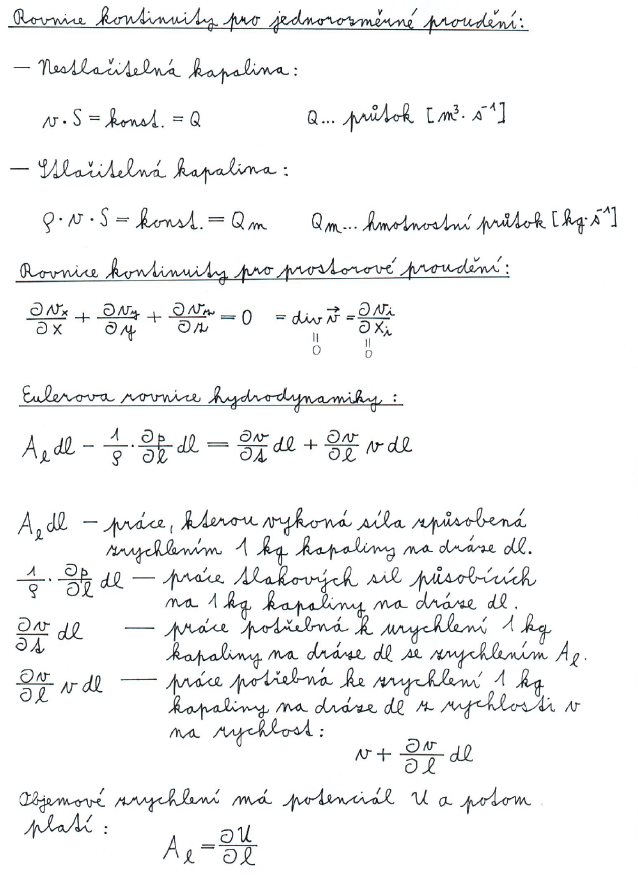 Rovnice kontinuity pro jednorozměrné proudění:
— Nestlačitelná kapalina:
v · S = konst. = Q Q... průtok [m³ · s⁻¹]
— Stlačitelná kapalina:
ρ · v · S = konst. = Qm Qm... hmotnostní průtok [kg · s⁻¹]
Rovnice kontinuity pro prostorové proudění:
∂vx/∂x + ∂vy/∂y + ∂vz/∂z = 0 = div v⃗ = ∂vi/∂xi
= 0 = 0
Eulerova rovnice hydrodynamiky:
Aℓ dl − 1/ρ · ∂p/∂l dl = ∂v/∂t dl + ∂v/∂l v dl
Aℓ dl — práce, kterou vykoná síla způsobená
zrychlením 1 kg kapaliny na dráze dl.
1/ρ · ∂p/∂l dl — práce tlakových sil působících
na 1 kg kapaliny na dráze dl.
∂v/∂t dl — práce potřebná k urychlení 1 kg
kapaliny na dráze dl se zrychlením Aℓ.
∂v/∂l v dl — práce potřebná ke zrychlení 1 kg
kapaliny na dráze dl z rychlosti v
na rychlost:
v + ∂v/∂l dl
Objemové zrychlení má potenciál U a potom
platí:
Aℓ = ∂U/∂l